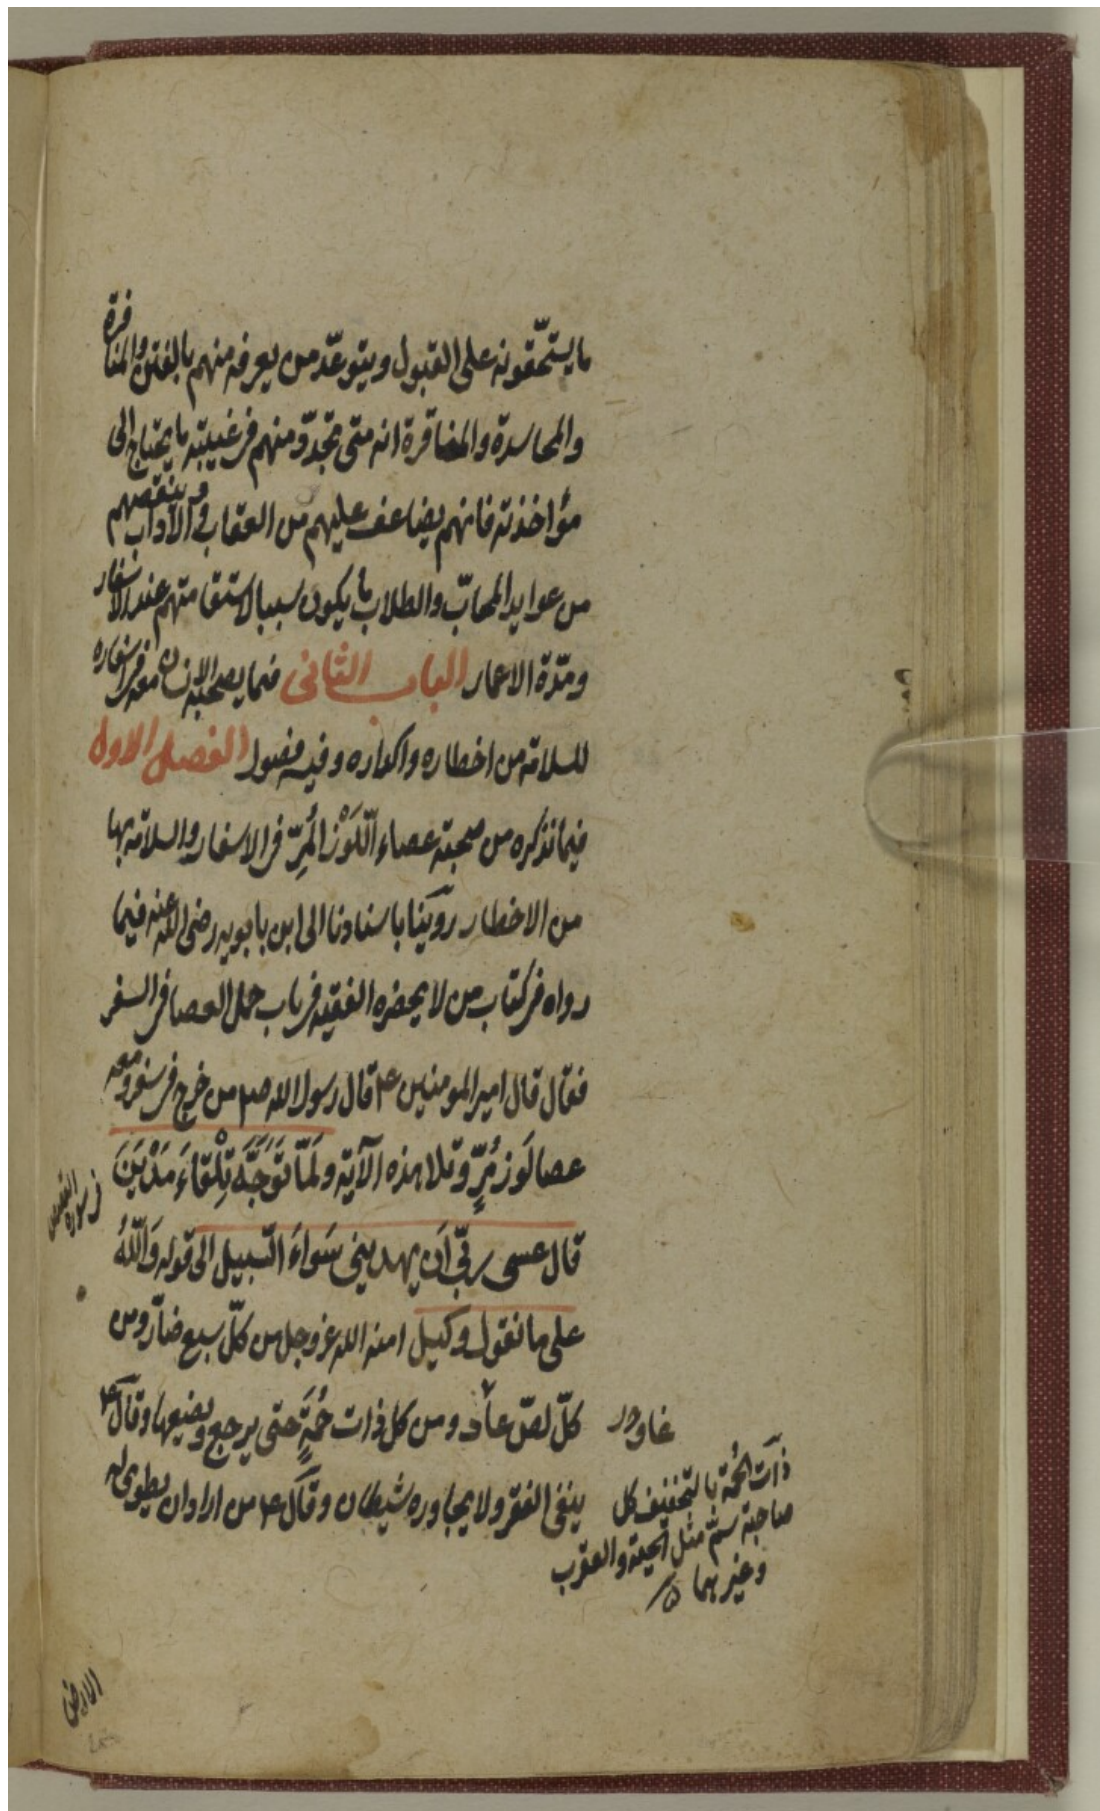 ما يستحقونه على القبول ويتوعّد من يعرفه منهم بالفتن والمنافرة
والمحاسدة والمناقرة انه متى تجدّد منهم فى غيبته ما يحتاج الى
مؤاخذته فانهم يضاعف عليهم من العقاب والآداب وينقصهم
من عوايد المحابّ والطلاب ما يكون سببا لاستقامتهم عند الاسفار
ومدّة الاعمار الباب الثانى فيما يصحبه الانسان معه فى اسفاره
للسلامة من اخطاره واكداره وفيه فصول الفصل الاول
فيما نذكره من صحبة عصاء اللَّوْز المُرِّ فى الاسفار والسلامة بها
من الاخطار روّينا باسنادنا الى ابن بابويه رضى الله عنه فيما
رواه فى كتاب من لا يحضره الفقيه فى باب حمل العصا فى السفر
فقال قال امير المومنين ع قال رسول الله ص من خرج فى سفر ومعه
عصا لَوز مُرٍّ وتلا هذه الآية ولَمّا تَوَجَّهَ تِلْقاءَ مَدْيَنَ
قال عسى ربّى اَن يهدينى سَواءَ السّبيل الى قوله وَاللّهُ
على ما نقول وكيل امنه الله عز وجل من كلّ سبع ضارّ ومن
كلّ لصّ عاد ومن كل ذات حُمَةٍ حتى يرجع ويضعها وقال ع
ينفى الفقر ولا يجاوره شيطان وقال ع من اراد ان يطوى له
فى سورة القصص
ذات الحُمة بالتخفيف كل
صاحبة سمّ مثل الحية والعقرب
وغيرهما
الارض